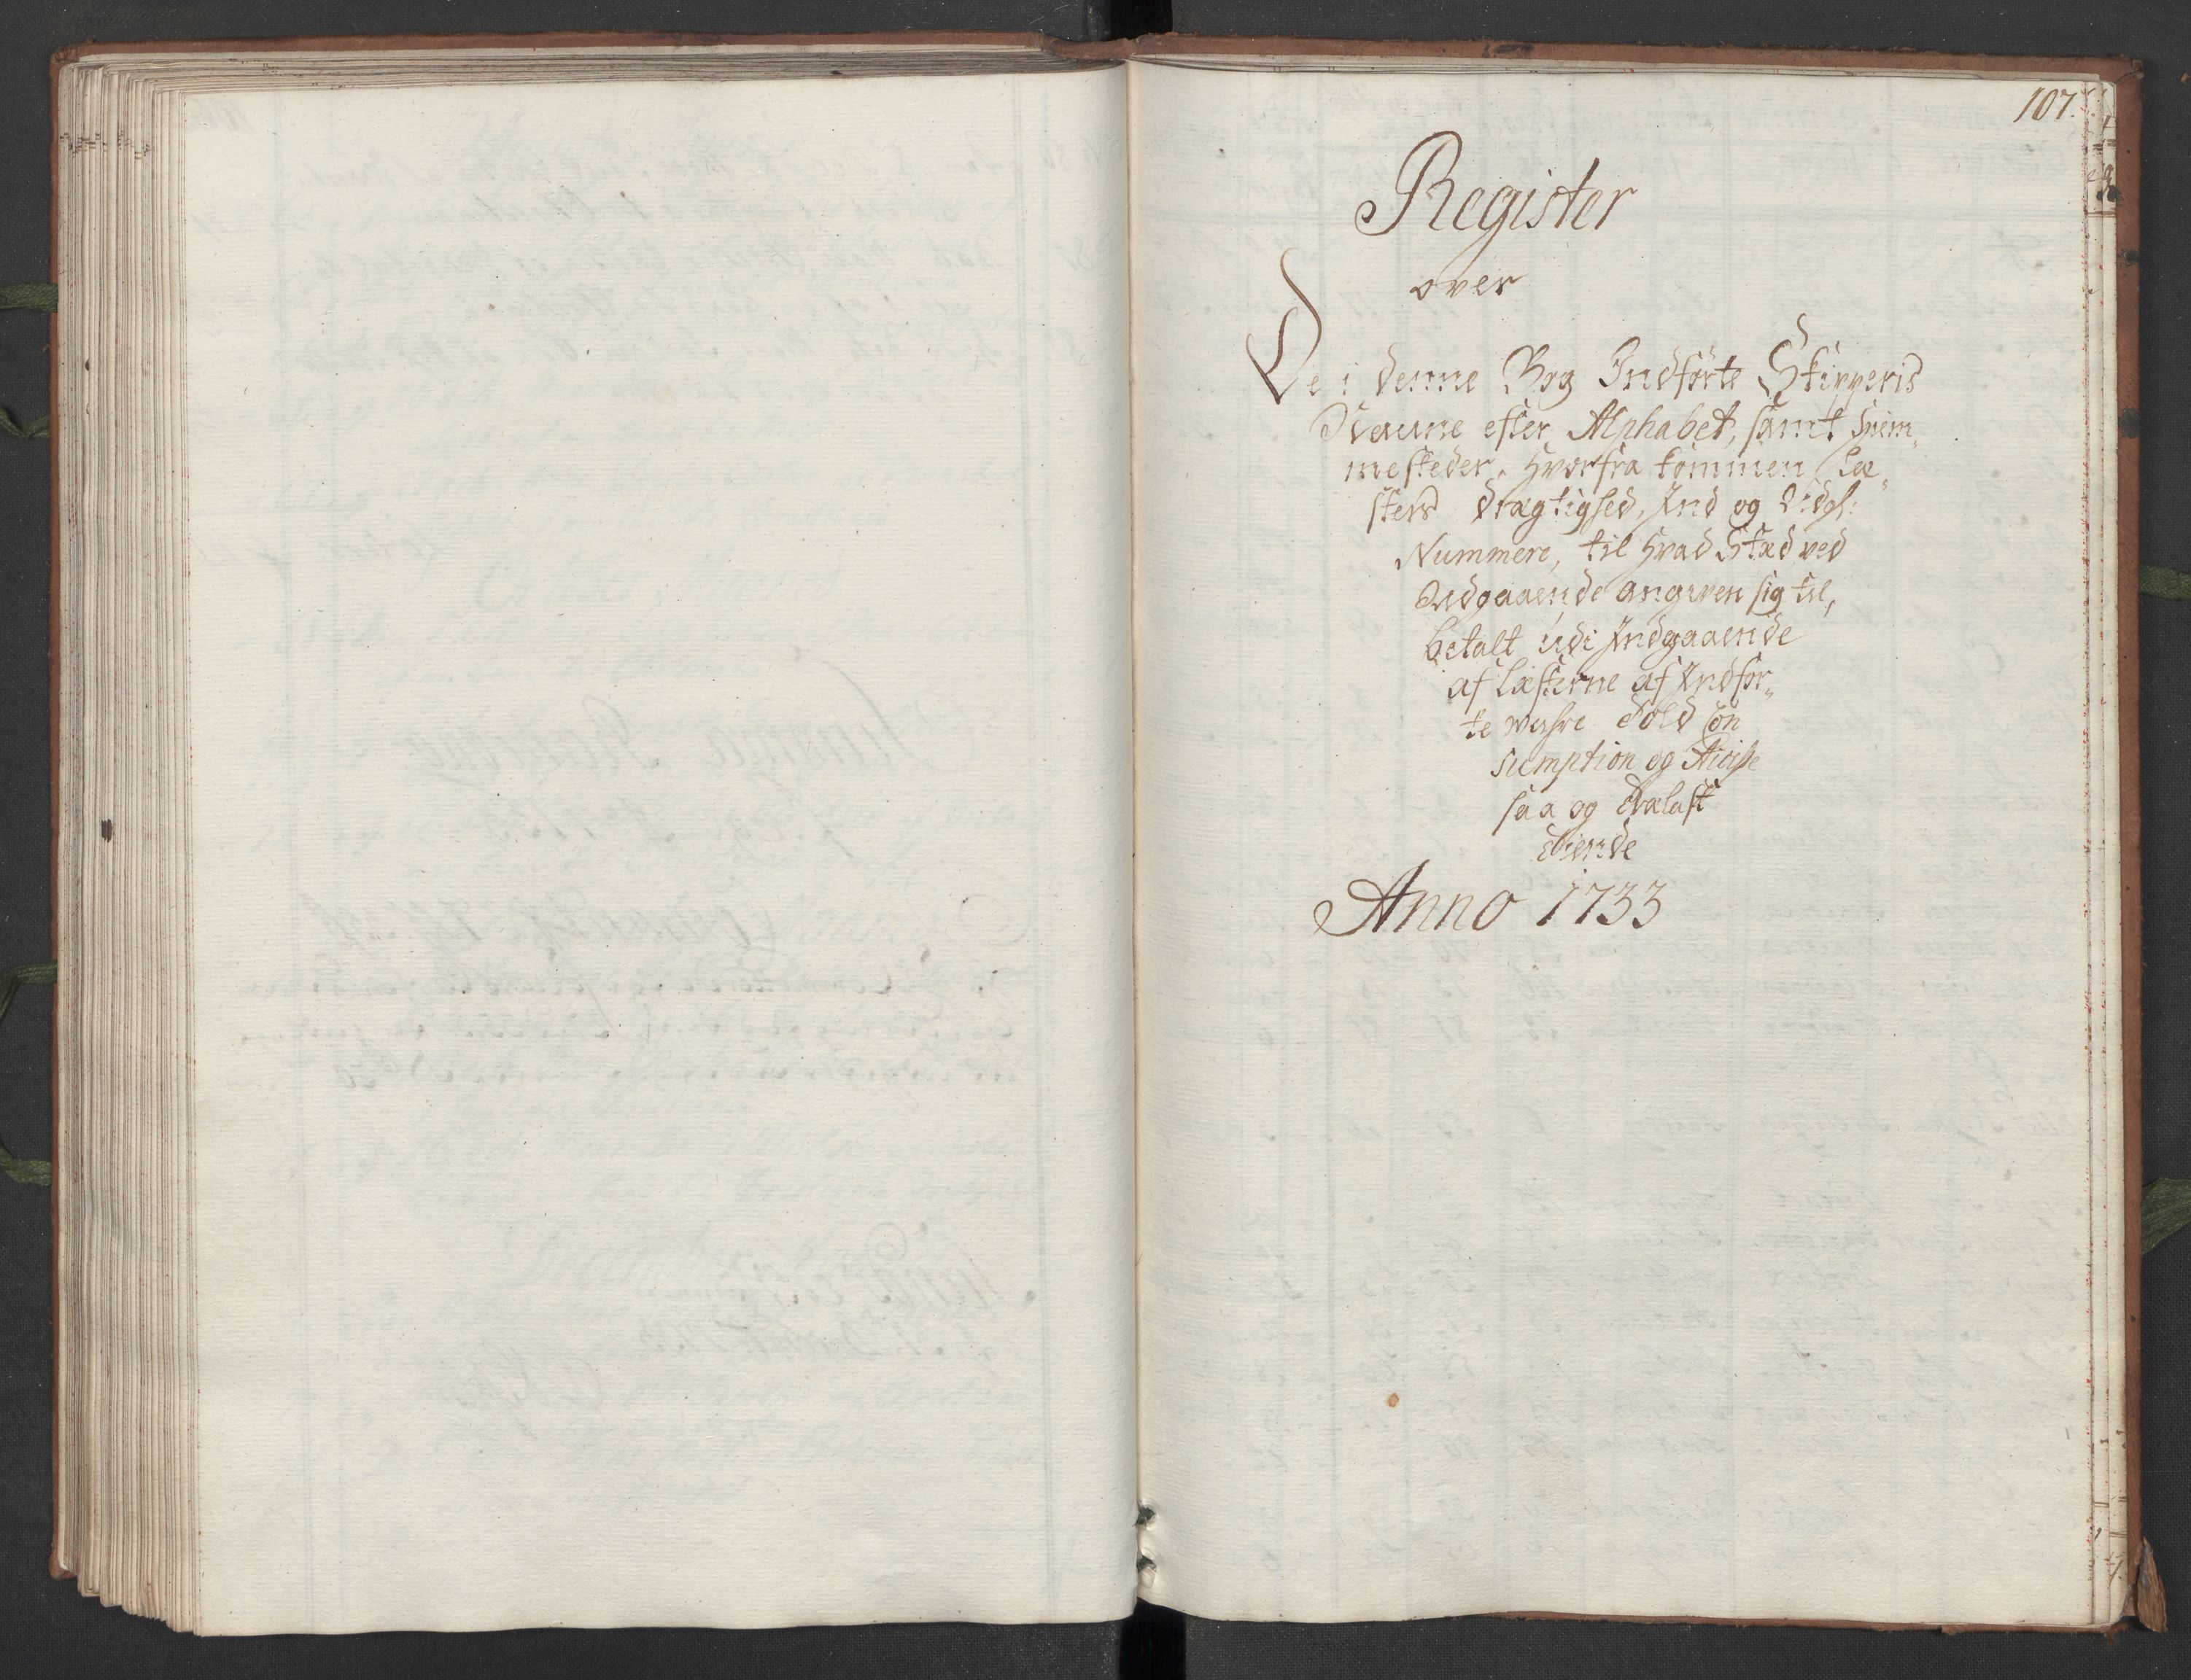 107.
Register
over
De i denne Bog Indførte Skipperis
Naune efter Alphabet, samt Hiem„
mesteder, Hvorfra kommen Læ„
sters drægtighed, Ind og Udg:
Nummere, til hvad Stæd ved
Udgaaende angiven sig til,
betalt udi Indgaaende
af Læsterne af Indfør„
te wahre Told Con
sumption og Accise
saa og Balast
Anno 1733